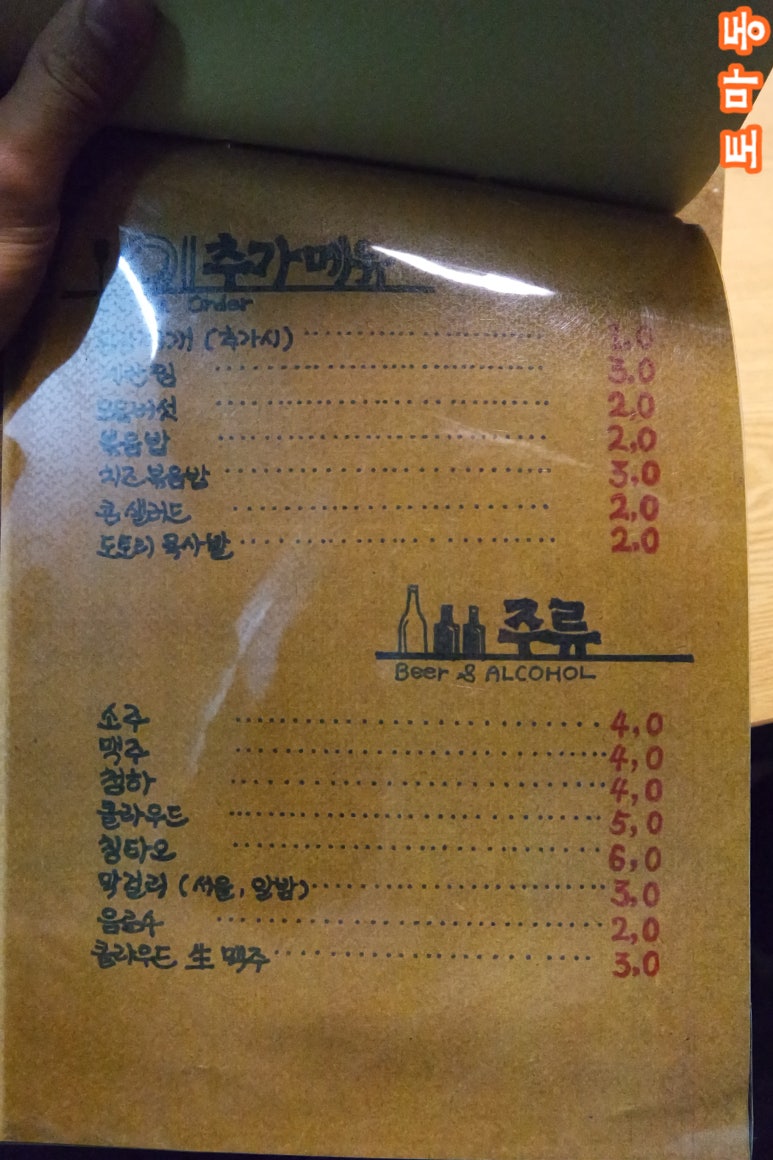 토마동
추가메뉴
Order
(추가시) 1.0
3.0
모듬버섯 2.0
볶음밥 2.0
치즈볶음밥 3.0
콘샐러드 2.0
도토리묵사발 2.0
주류
Beer & ALCOHOL
소주 4,0
맥주 4,0
청하 4,0
클라우드 5,0
칭타오 6,0
막걸리 (서울, 알밤) 3.0
음료수 2,0
클라우드 生 맥주 3.0